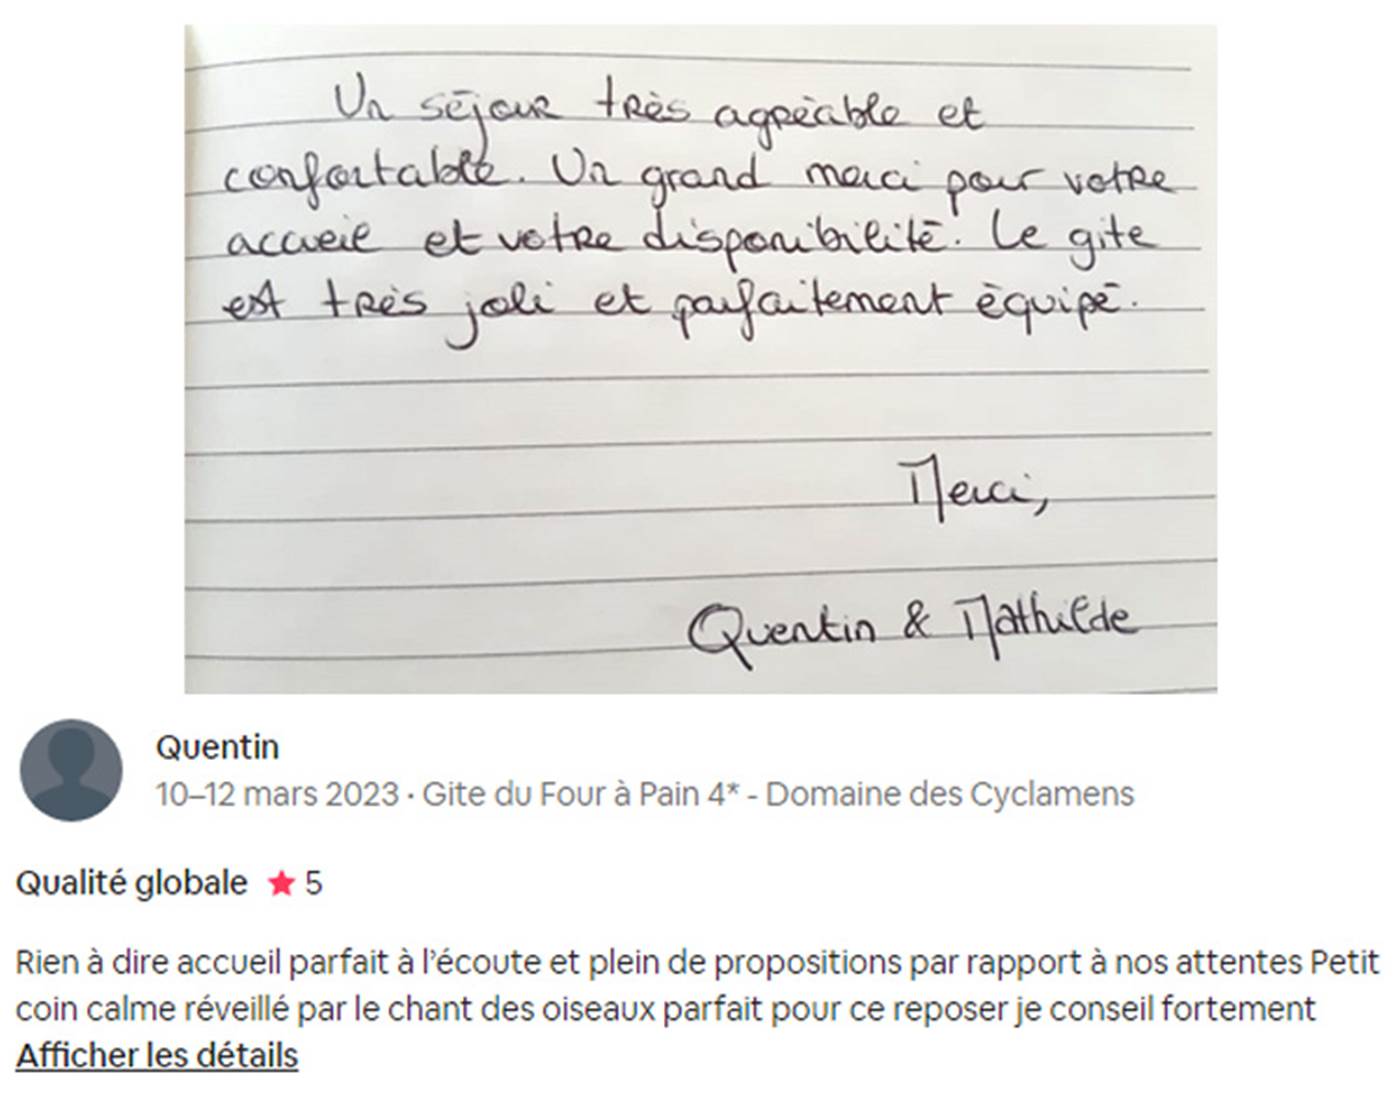 Un séjour très agréable et
confortable. Un grand merci pour votre
accueil et votre disponibilité. Le gite
est très joli et parfaitement équipé.
Merci,
Quentin & Mathilde
Quentin
10–12 mars 2023 · Gite du Four à Pain 4* - Domaine des Cyclamens
Qualité globale ★ 5
Rien à dire accueil parfait à l’écoute et plein de propositions par rapport à nos attentes Petit
coin calme réveillé par le chant des oiseaux parfait pour ce reposer je conseil fortement
Afficher les détails